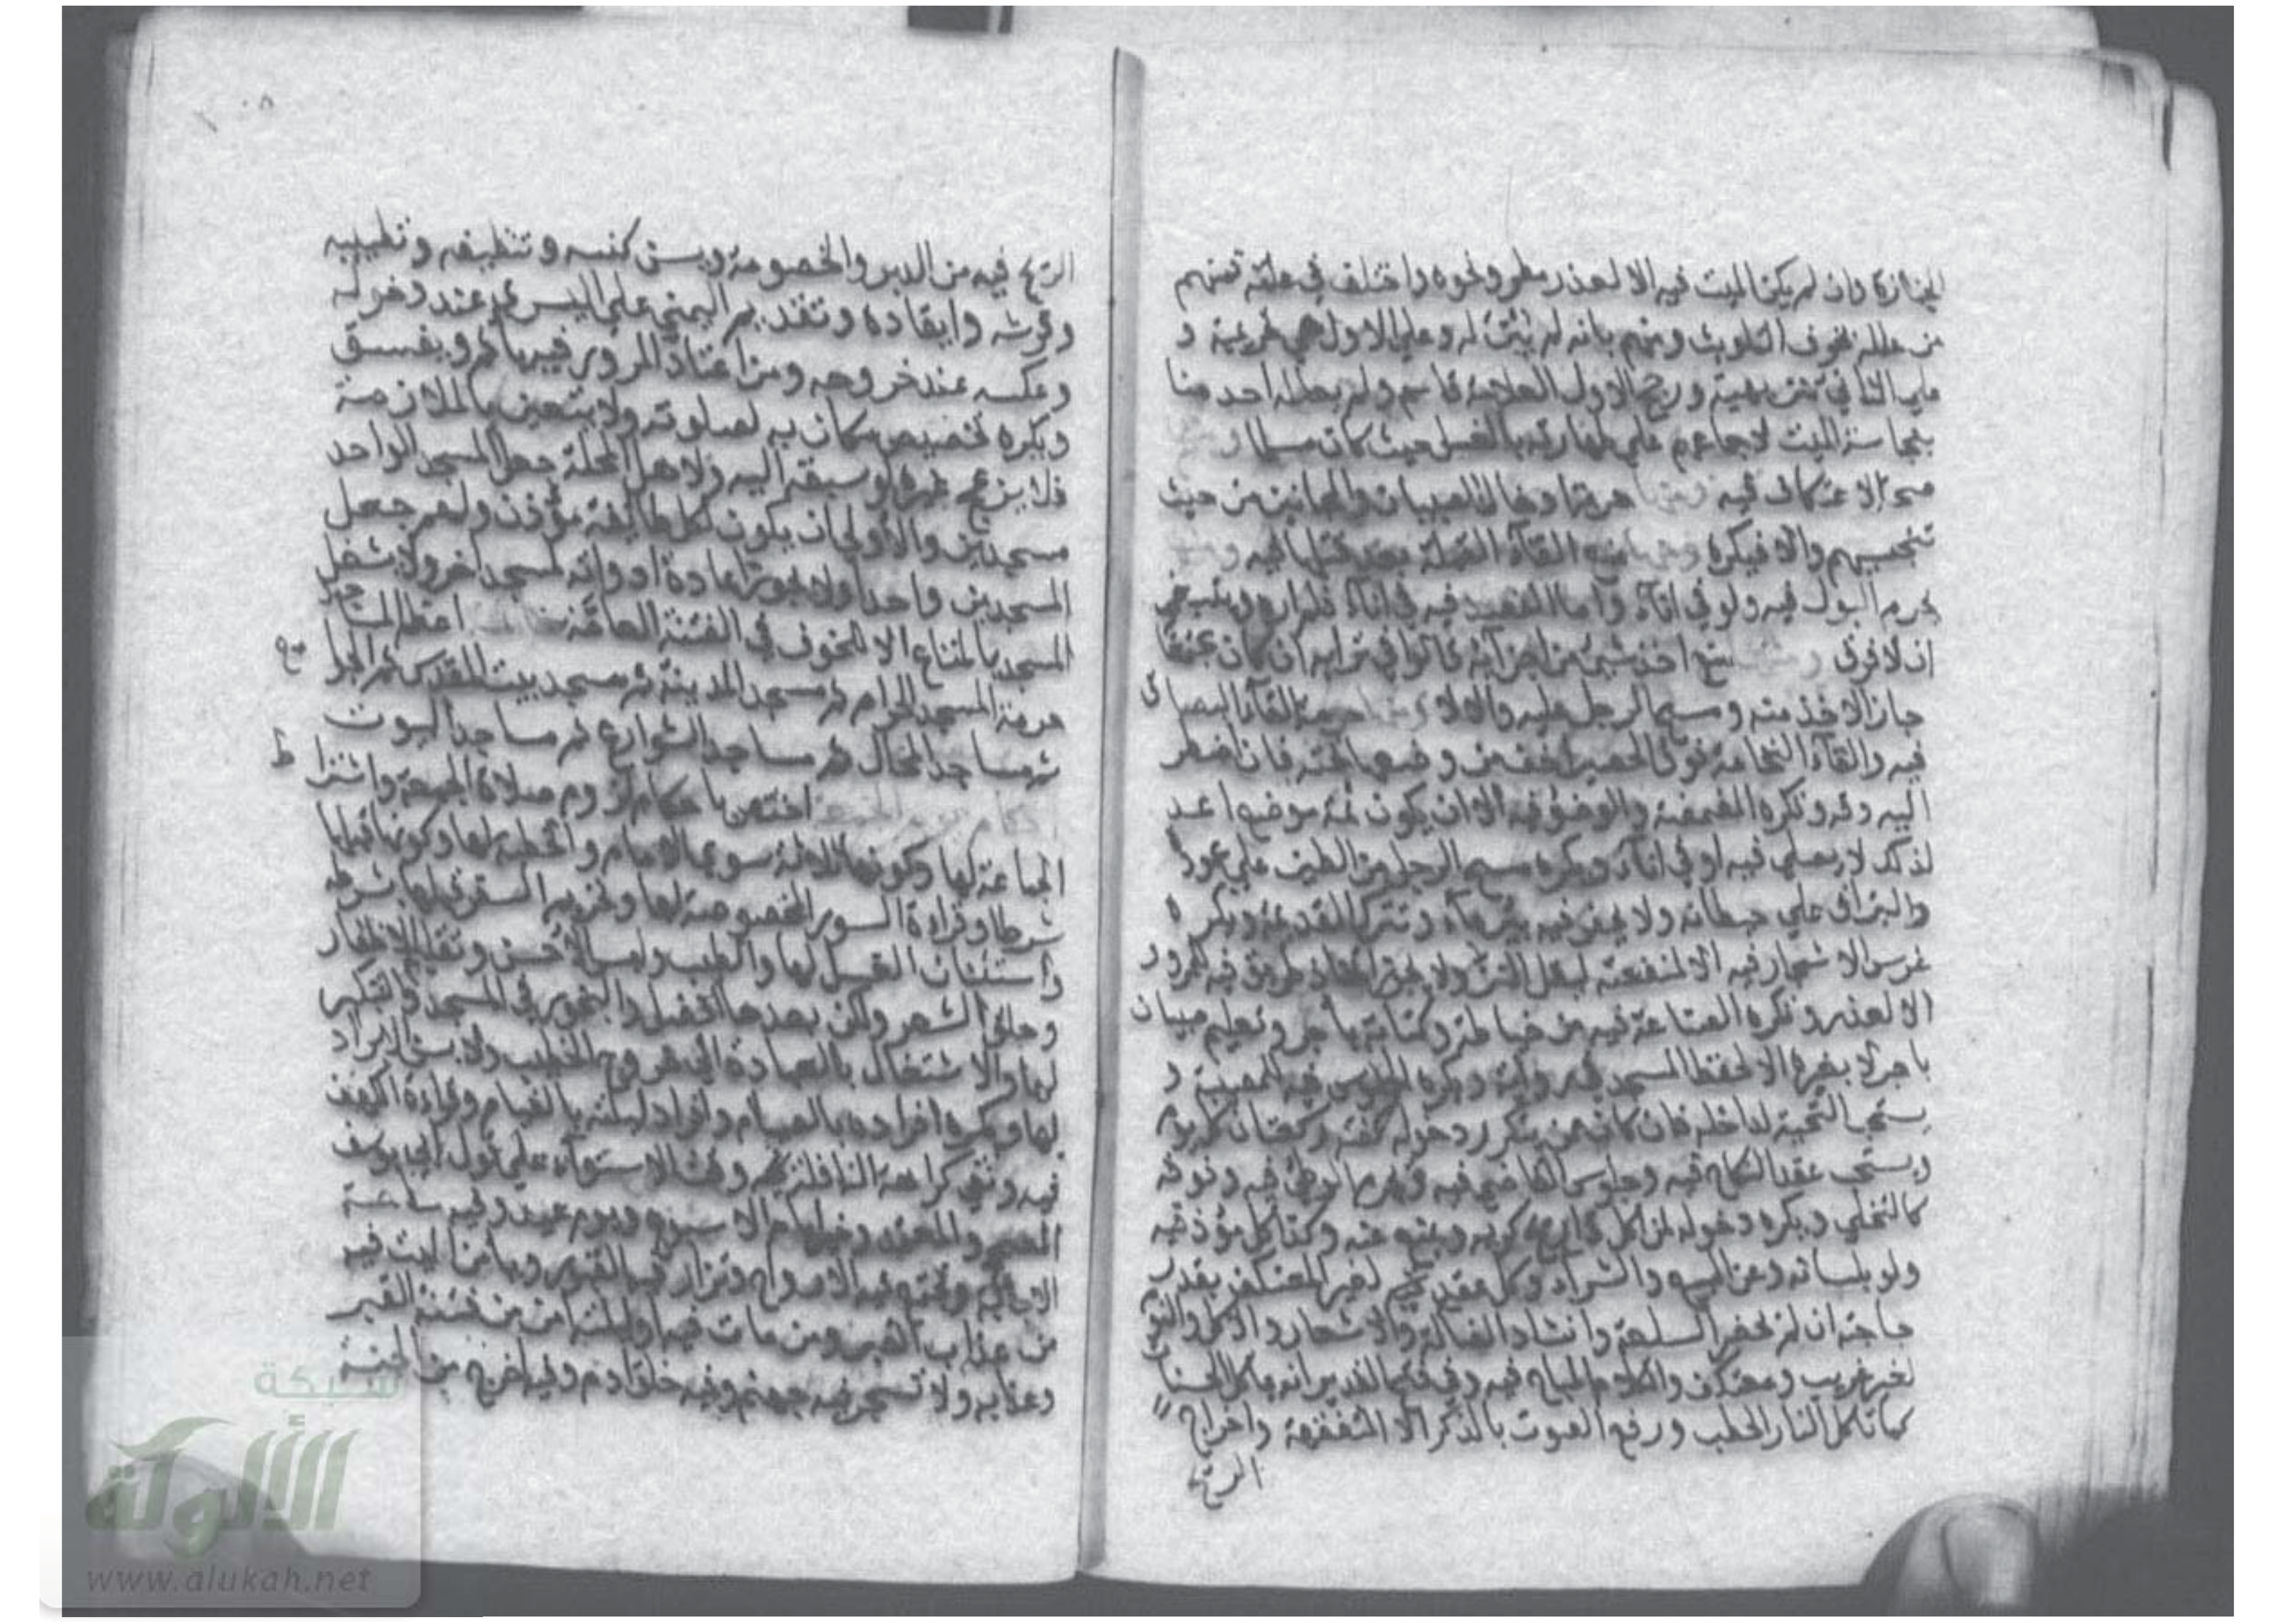 الجنازة وان لم يكن الميت فيه الا لعذر مطر ونحوه واختلف في علته فمنهم
من علله بخوف التلويث ومنهم بانه لم يبن له وعلى الاول هي تحريمية و
على الثاني تنزيهية ورجح الاول العلامة قاسم ولم يعلله احد منا
بنجاسة الميت لاجماعهم على طهارته بالغسل حيث كان مسلما و
صحة الاعتكاف فيه ومنها حرمة ادخال الصبيان والمجانين من حيث
تنجيسهم والا فيكره ومنها منع القاء القملة بعد قتلها فيه و
يحرم البول فيه ولو في اناء واما الفصد فيه في اناء فلم اره وينبغي
ان لا فرق ومنها منع اخذ شيء من اجزائه قالوا في ترابه ان كان مجتمعا
جاز الاخذ منه ومسح الرجل عليه والا لا ومنها حرمة القاء البصاق
فيه والقاء النخامة فوق الحصير اخف من وضعها تحته فان اضطر
اليه دفنه وتكره المضمضة والوضوء فيه الا ان يكون ثمة موضع اعد
لذلك لا يصلى فيه او في اناء ويكره مسح الرجل من الطين على عموده
والبزاق على حيطانه ولا يحفر فيه بئر ماء وتترك القديمة ويكره
غرس الاشجار فيه الا لمنفعة ليقل النز ولا يجوز اتخاذ طريق فيه للمرور
الا لعذر وتكره الصناعة فيه من خياطة وكتابة باجر وتعليم صبيان
باجر لا بغيره الا لحفظ المسجد في رواية ويكره الجلوس فيه للمصيبة و
يستحب التحية لداخله فان كان ممن يتكرر دخوله كفته ركعتان كل يوم
ويستحب عقد النكاح فيه وجلوس القاضي فيه ويحرم الوطئ فيه وفوقه
كالتخلي ويكره دخوله لمن اكل ذا ريح كريه ويمنع منه وكذا كل مؤذ فيه
ولو بلسانه وعن البيع والشراء وكل عقد فيه لغير المعتكف بقدر
حاجته ان لم يحضر السلعة وانشاد الضالة والاشعار والاكل والنوم
لغير غريب ومعتكف والكلام المباح فيه وفي فتح القدير انه ياكل الحسنات
كما تاكل النار الحطب ورفع الصوت بالذكر الا للمتفقهة واخراج
الريح
الريح فيه من الدبر والخصومة ويسن كنسه وتنظيفه وتطييبه
وفرشه وايقاده وتقديم اليمنى على اليسرى عند دخوله
وعكسه عند خروجه ومن اعتاد المرور فيه ياثم ويفسق
ويكره تخصيص مكان به لصلوته ولا يتعين بالملازمة
فلا يزعج غيره لو سبقه اليه ولاهل المحلة جعل المسجد الواحد
مسجدين والاولى ان يكون لكل طائفة مؤذن ولهم جعل
المسجدين واحدا ولا يجوز اعادة ادواته لمسجد اخر ولا يشغل
المسجد بالمتاع الا للخوف في الفتنة العامة اعظم المساجد
حرمة المسجد الحرام ثم مسجد المدينة ثم مسجد بيت المقدس ثم الجوامع
ثم مساجد المحال ثم مساجد الشوارع ثم مساجد البيوت
احكام يوم الجمعة اختص باحكام لزوم صلاة الجمعة واشتراط
الجماعة لها وكونها ثلاثة سوى الامام والخطبة لها وكونها قبلها
شرطا وقراءة السور المخصوصة لها وتحريم السفر قبلها بشرطه
واستنان الغسل لها والطيب ولبس الاحسن وتقليم الاظفار
وحلق الشعر ولكن بعدها افضل والبخور في المسجد والتبكير
لها والاشتغال بالعبادة الى خروج الخطيب ولا يسن الابراد
بها ويكره افراده بالصيام وافراد ليلته بالقيام وقراءة الكهف
فيه ونفي كراهة النافلة وقت الاستواء على قول ابي يوسف
الصحيح المعتمد وخير ايام الاسبوع ويوم عيد وفيه ساعة
الاجابة وتجتمع فيه الارواح وتزار فيه القبور ويامن الميت فيه
من عذاب القبر ومن مات فيه او ليلته امن من فتنة القبر
وعذابه ولا تسجر فيه جهنم وفيه خلق ادم وفيه اخرج من الجنة
شبكة
الألوكة
www.alukah.net